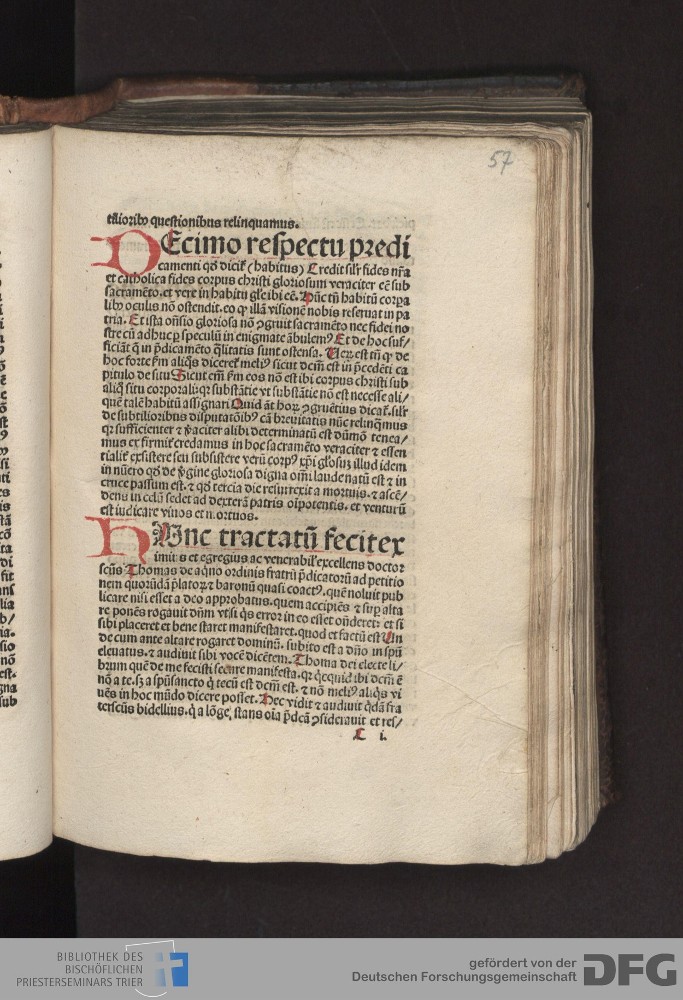 57
tilioribꝰ questionibus relinquamus.
DEcimo respectu predi
camenti qd̕ dicit̕ (habitus) Credit silr̕ fides nr̄a
et catholica fides corpus christi gloriosum veraciter eē sub
sacramēto. et vere in habitu gl̓e ibi eē. Nūc tn̄ habitū corpa
libꝰ oculis nō ostendit. eo ꝙ illā visionē nobis reseruat in pa
tria. Et ista oñsio gloriosa nō ꝯgruit sacramēto nec fidei no
stre cū adhuc ꝑ speculū in enigmate ābulemꝰ Et de hoc suf⸗
ficiāt q̄ in p̄dicamēto q̄litatis sunt ostensa. Uerū est tn̄ ꝙ de
hoc forte s̄m aliq̄s diceret̕ meliꝰ sicut dcm̄ est in p̄cedēti ca
pitulo de situ Sicut em̄ s̄m eos nō est ibi corpus christi sub
aliq̄ situ corporali: qr̕ substātie vt substātie nō est necesse ali⸗
quē talē habitū assignari Quid āt horꝝ ꝯgruētius dicat̕. silr̕
de subtilioribus disputatōibꝰ cā breuitatis nūc relinq̄mus
qr̕ sufficienter ⁊ ꝟaciter alibi determinatū est dūmō tenea⸗
mus et firmit̕ credamus in hoc sacramēto veraciter ⁊ essen
tialit̕ exsistere seu subsistere verū corpꝰ xp̄i gl̓osuꝫ illud idem
in nūero qd̕ de ꝟgine gloriosa digna om̄i laude natū est ⁊ in
cruce passum est. ⁊ qd̕ tercia die resurrexit a mortuis. ⁊ ascē⸗
dens in celū sedet ad dexterā patris oīpotentis. et venturū
est iudicare viuos et mortuos.
HUnc tractatū fecit ex
imius et egregius ac venerabil̕ excellens doctor
sctūs Thomas de aq̄no ordinis fratrū p̄dicatorū ad petitio
nem quorūdā p̄latoꝝ ⁊ baronū quasi coactꝰ. quē noluit pub
licare nisi esset a deo approbatus. quem accipiēs ⁊ suꝑ alta
re ponēs rogauit dn̄m vt si q̄s error in eo esset oñderet: et si
sibi placeret et bene staret manifestaret. quod et factū est Un
de cum ante altare rogaret dominū. subito est a dn̄o in spū
eleuatus. ⁊ audiuit sibi vocē dicētem. Thoma dei electe li⸗
brum quē de me fecisti secure manifesta. qr̕ q̄cquid ibi dcm̄ ē
nō a te. sꝫ a spūsancto q̄ tecū est dcm̄ est. ⁊ nō meliꝰ aliq̄s vi
uēs in hoc mūdo dicere posset. Hec vidit ⁊ audiuit q̄dā fra
terscūs bidellius. q̄ a lōge stans oīa p̄dcā ꝯsiderauit et res⸗
C i.
BIBLIOTHEK DES
BISCHÖFLICHEN
PRIESTERSEMINARS TRIER
gefördert von der
Deutschen Forschungsgemeinschaft
DFG